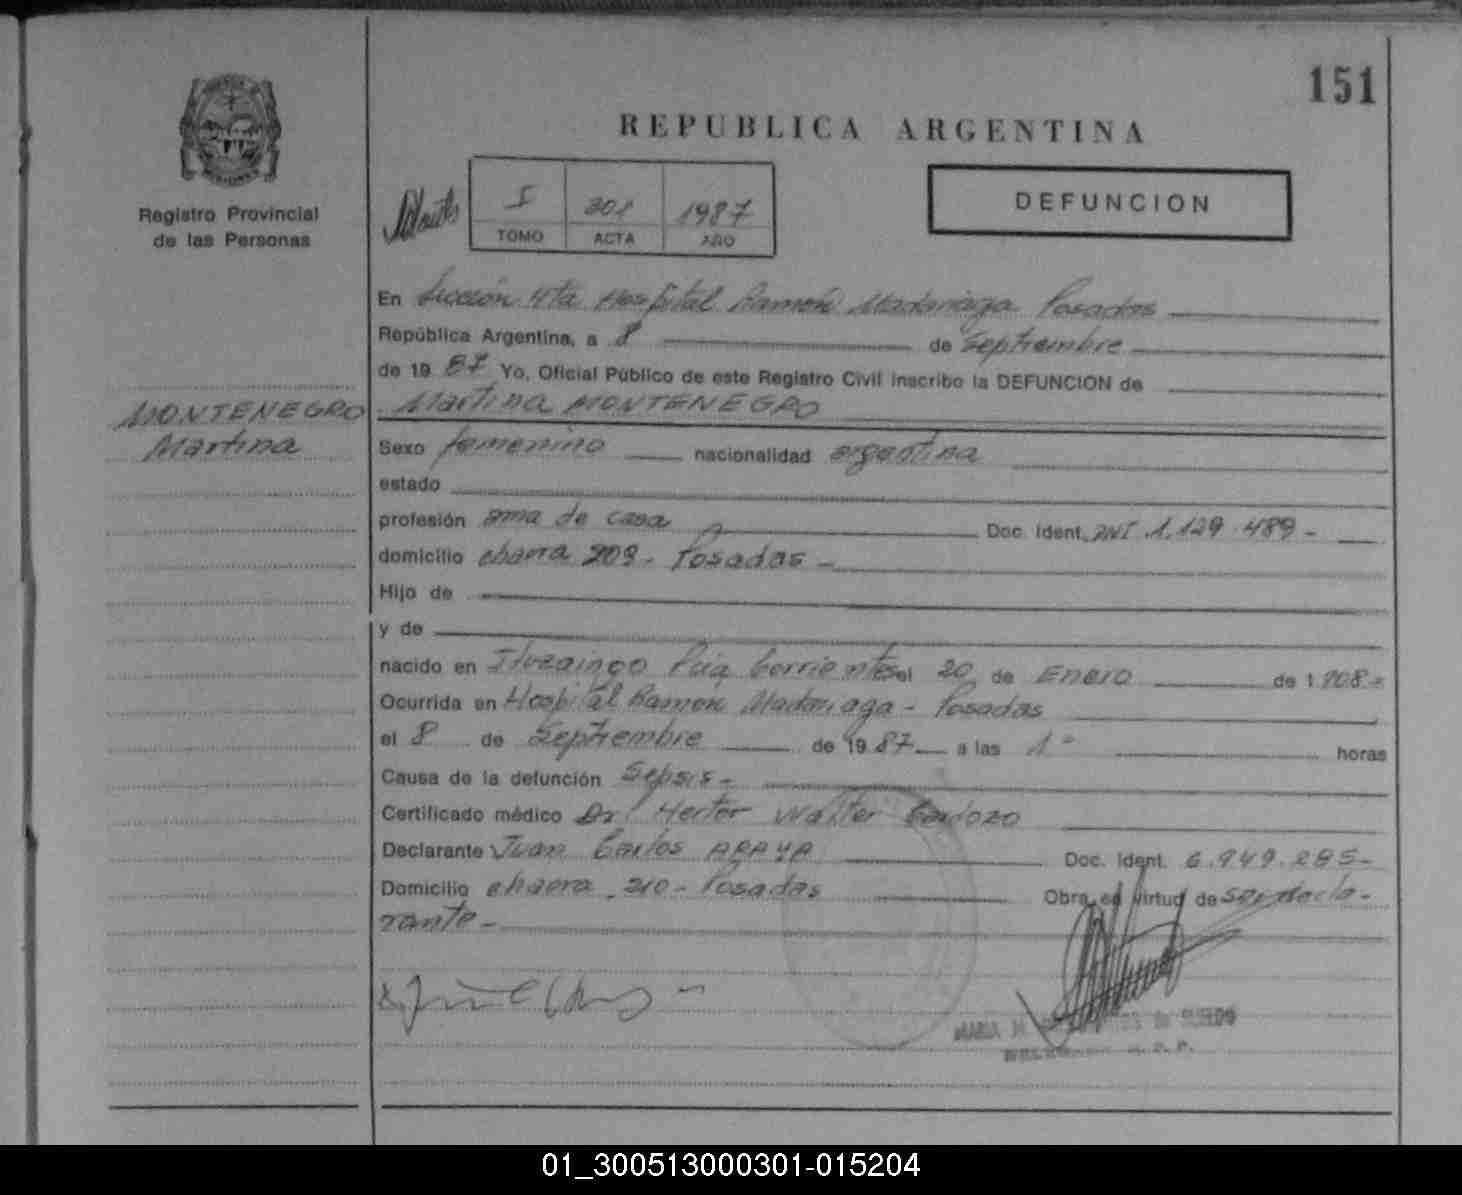 151
REPUBLICA ARGENTINA
Registro Provincial
de las Personas
I 301 1987
TOMO ACTA AÑO
DEFUNCION
En Sección 4ta Hospital Ramón Madariaga Posadas
República Argentina, a 8 de Septiembre
de 19 87 Yo, Oficial Público de este Registro Civil inscribo la DEFUNCION de
MONTENEGRO
Martina
Martina MONTENEGRO
Sexo femenino nacionalidad argentina
estado
profesión ama de casa Doc. Ident. DNI 1.129.489-
domicilio chacra 209- Posadas-
Hijo de
y de
nacido en Ituzaingo Pcia Corrientes el 20 de Enero de 1.908-
Ocurrida en Hospital Ramón Madariaga - Posadas
el 8 de Septiembre de 19 87 a las 1 horas
Causa de la defunción Sepsis-
Certificado médico Dr Hector Walter Cardozo
Declarante Juan Carlos ARAYA Doc. Ident. 6.949.285-
Domicilio chacra 210- Posadas Obra en virtud de ser decla-
rante-
MARIA
01_300513000301-015204